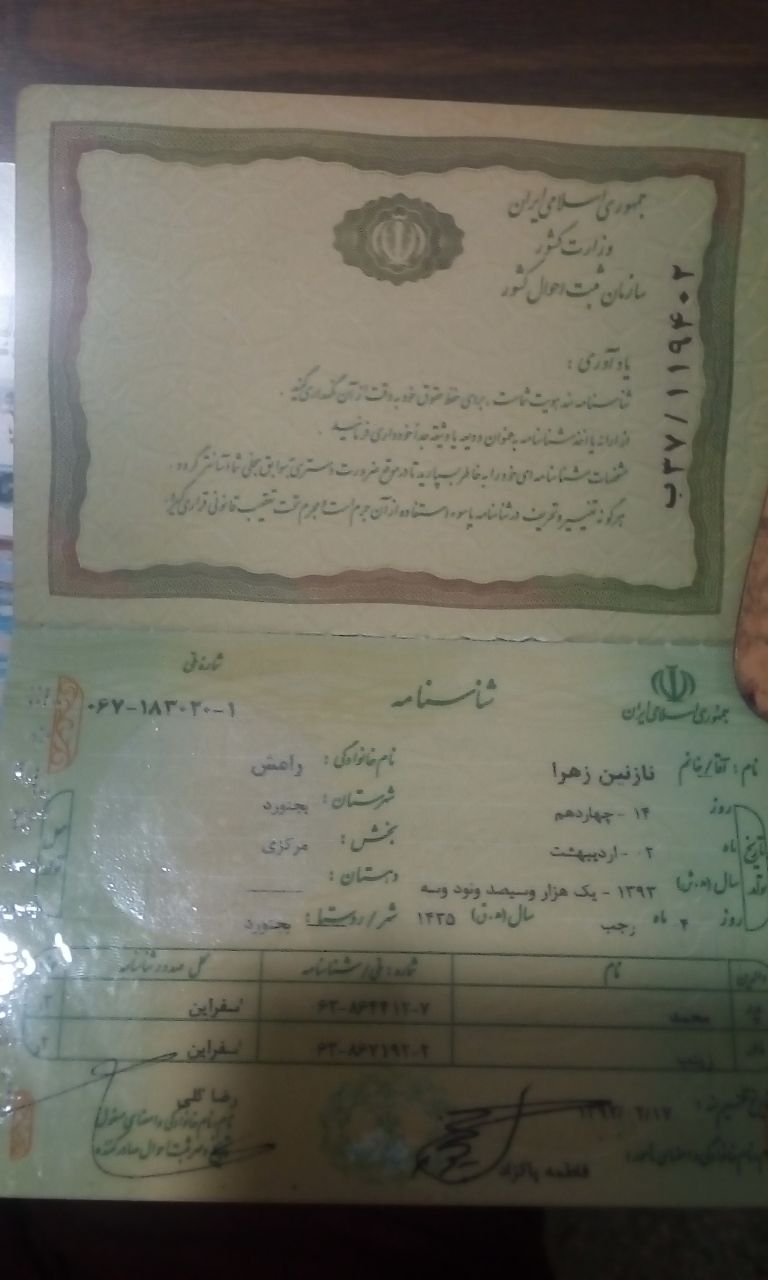 جمهوری اسلامی ایران
وزارت کشور
سازمان ثبت احوال کشور
ب۳۷/۱۱۹۴۰۲
یادآوری :
شناسنامه سند هویت شماست ، برای حفظ حقوق خود به دقت از آن نگهداری کنید .
از ارائه یا اخذ شناسنامه به عنوان ودیعه یا وثیقه جداً خودداری فرمائید .
مشخصات شناسنامه ای خود را به خاطر بسپارید تا در موقع ضرورت دسترسی به سوابق سجلی شما آسانتر گردد .
هرگونه تغییر و تحریف در شناسنامه یا سوء استفاده از آن جرم است و مجرم تحت تعقیب قانونی قرار می گیرد
جمهوری اسلامی ایران
شناسنامه
شماره ملی
۰۶۷-۱۸۳۰۲۰-۱
نام : آقا/خانم نازنین زهرا نام خانوادگی : راعش
تاریخ تولد
روز ۱۴ - چهاردهم شهرستان : بجنورد
ماه ۰۲ - اردیبهشت بخش : مرکزی
سال (ه.ش) ۱۳۹۳ - یک هزار وسیصد ونود وسه دهستان :
روز ۴ ماه رجب سال (ه.ق) ۱۴۳۵ شهر/روستا : بجنورد
والدین نام شماره : ملی/شناسنامه محل صدور شناسنامه
پدر محمد ۶۳-۸۶۴۴۱۲-۷ اسفراین
مادر ۶۳-۸۶۷۱۹۲-۲ اسفراین
رضا گلی
نام، نام خانوادگی و امضای مسئول
فاطمه پاکزاد